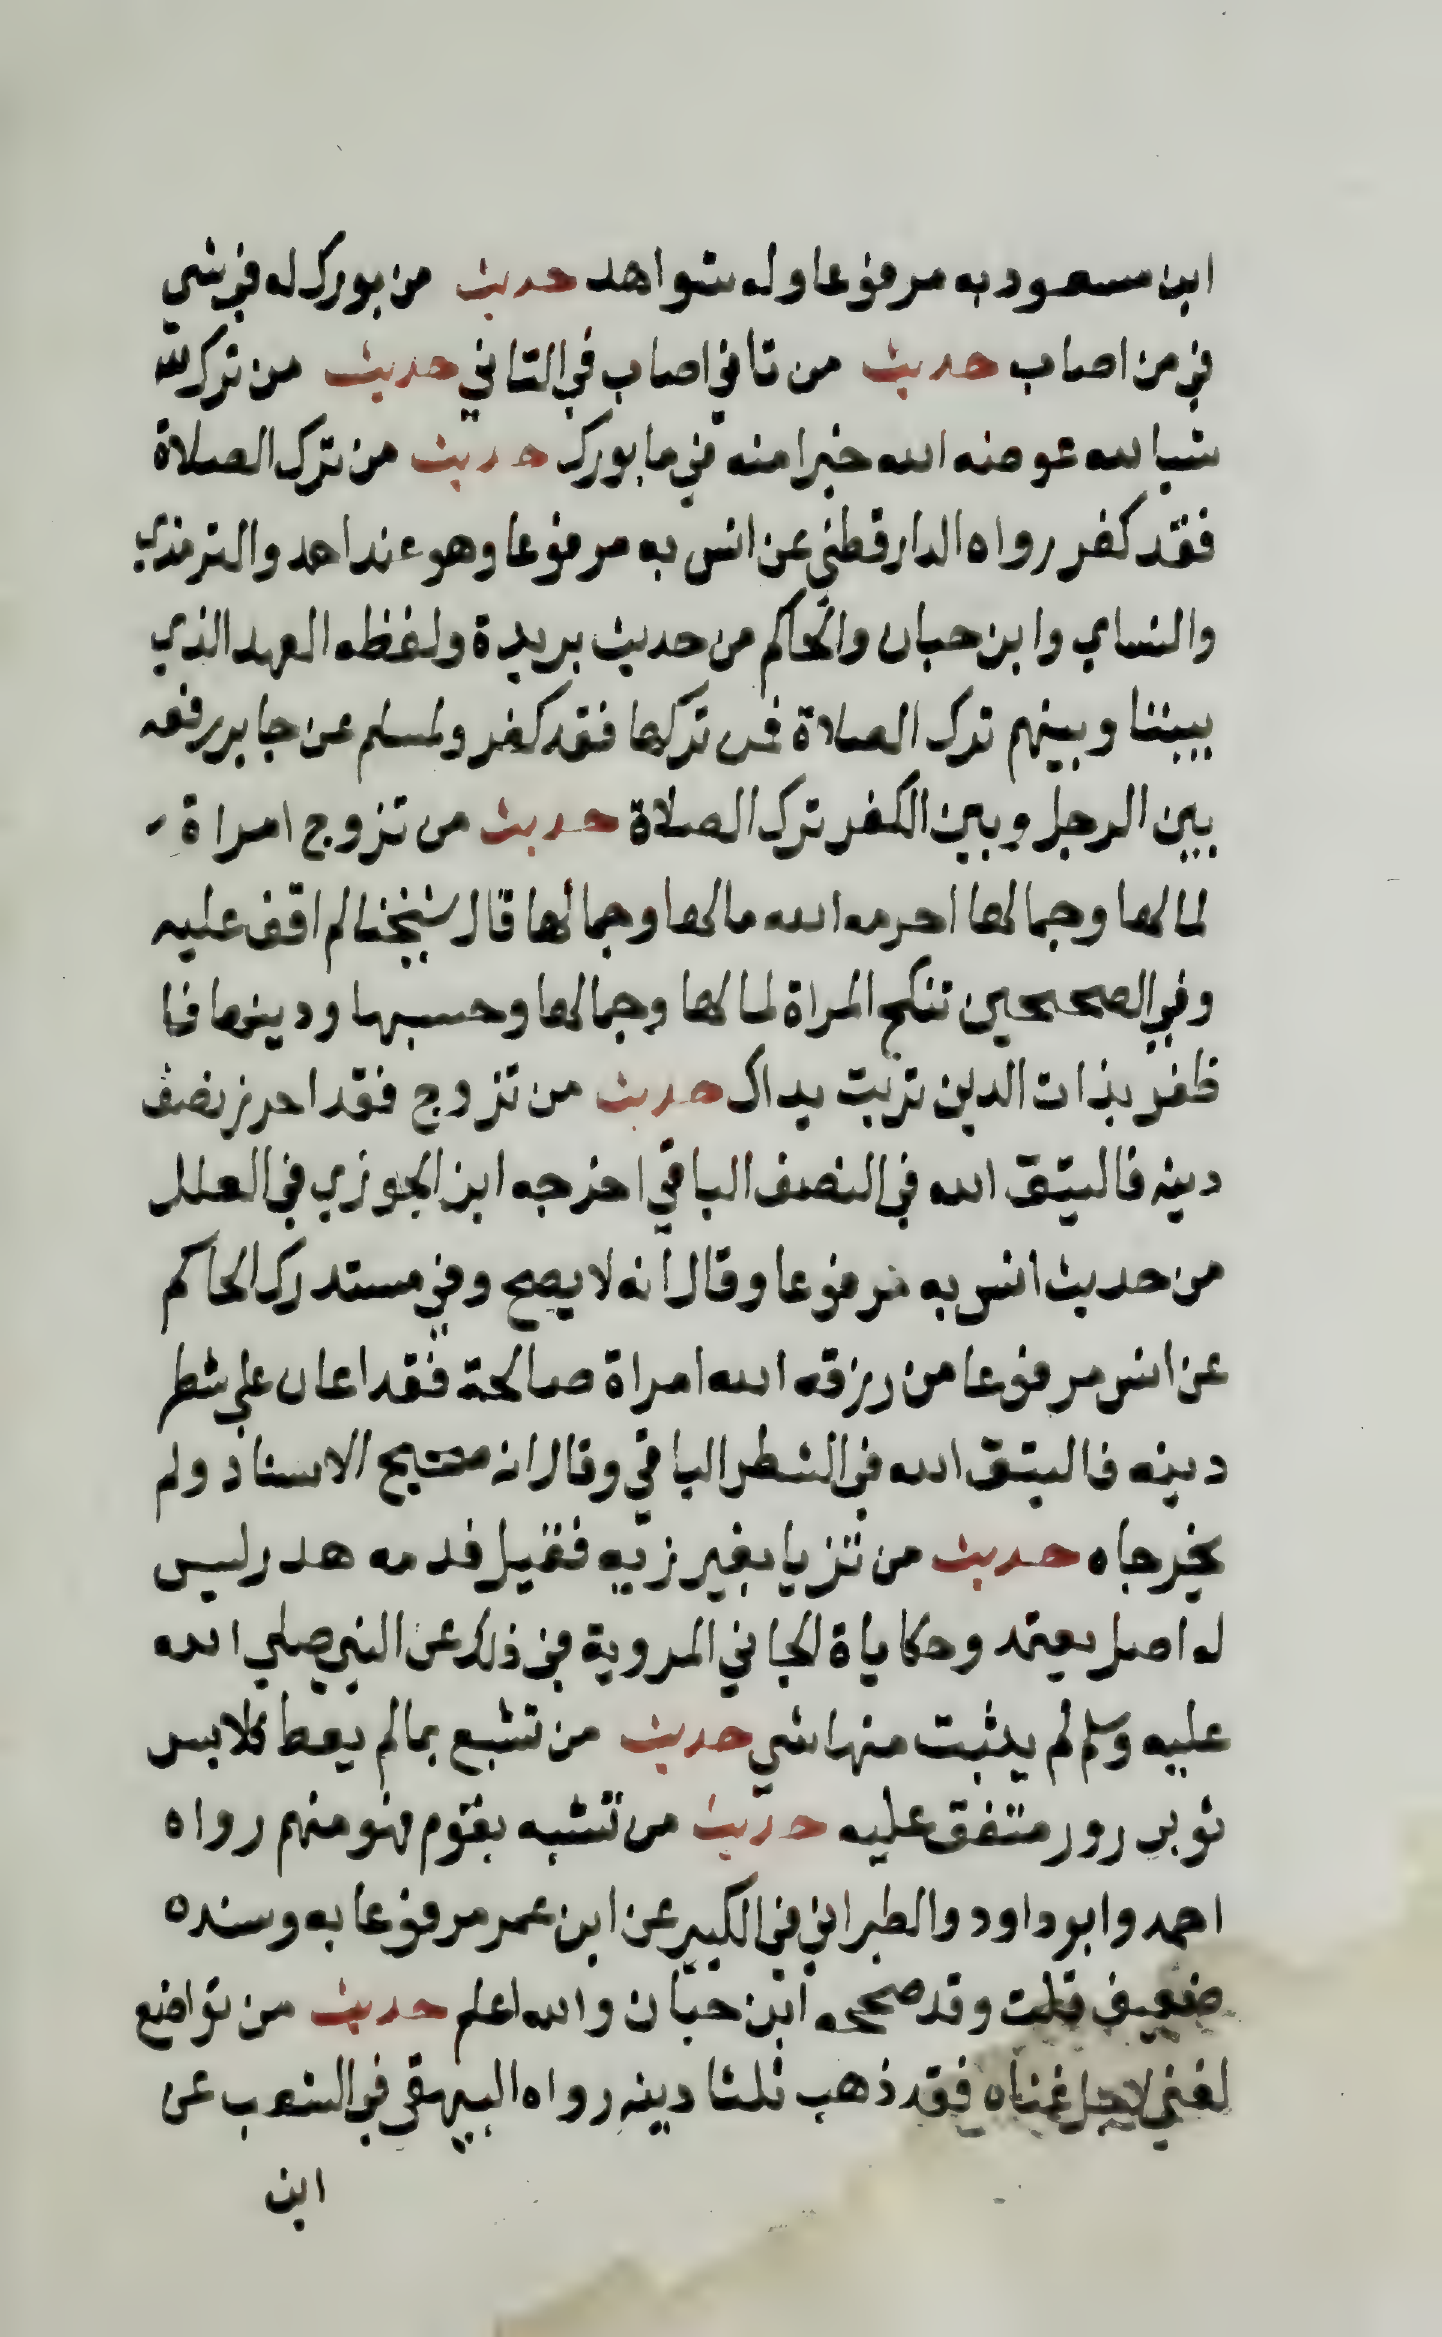 ابن مسعود به مرفوعا وله شواهد حديث من بورك له في شي
في من اصاب حديث من تاني اصاب في التاني حديث من ترك لله
شيا لله عوضه الله خيرا منه في ما بورك حديث من ترك الصلاة
فقد كفر رواه الدارقطني عن انس به مرفوعا وهو عند احمد والترمذي
والنساي وابن حبان والحاكم من حديث بريدة ولفظه العهد الذي
بيننا وبينهم ترك الصلاة فمن تركها فقد كفر ولمسلم عن جابر رفعه
بين الرجل وبين الكفر ترك الصلاة حديث من تزوج امراة
لمالها وجمالها احرمه الله مالها وجمالها قال شيخنا لم اقف عليه
وفي الصحيحين تنكح المراة لمالها وجمالها وحسبها ودينها فا
ظفر بذات الدين تربت يداك حديث من تزوج فقد احرز نصف
دينه فاليتق الله في النصف الباقي اخرجه ابن الجوزي في العلل
من حديث انس به مرفوعا وقال انه لا يصح وفي مستدرك الحاكم
عن انس مرفوعا من رزقه الله امراة صالحة فقد اعان علي شطر
دينه فاليتق الله في الشطر الباقي وقال انه صحيح الاسناد ولم
يخرجاه حديث من تزيا بغير زيه فقيل فدمه هدر ليس
له اصل يعتمد وحكاياة الجاني المروية في ذلك عن النبي صلي الله
عليه وسلم لم يثبت منها شي حديث من تشبع بمالم يعط كلابس
ثوبي زور متفق عليه حديث من تشبه بقوم فهو منهم رواه
احمد وابو داود والطبراني في الكبير عن ابن عمر مرفوعا به وسنده
ضعيف قلت وقد صححه ابن حبان والله اعلم حديث من تواضع
لغني لاجل غناه فقد ذهب ثلثا دينه رواه البيهقي في الشعب عن
ابن